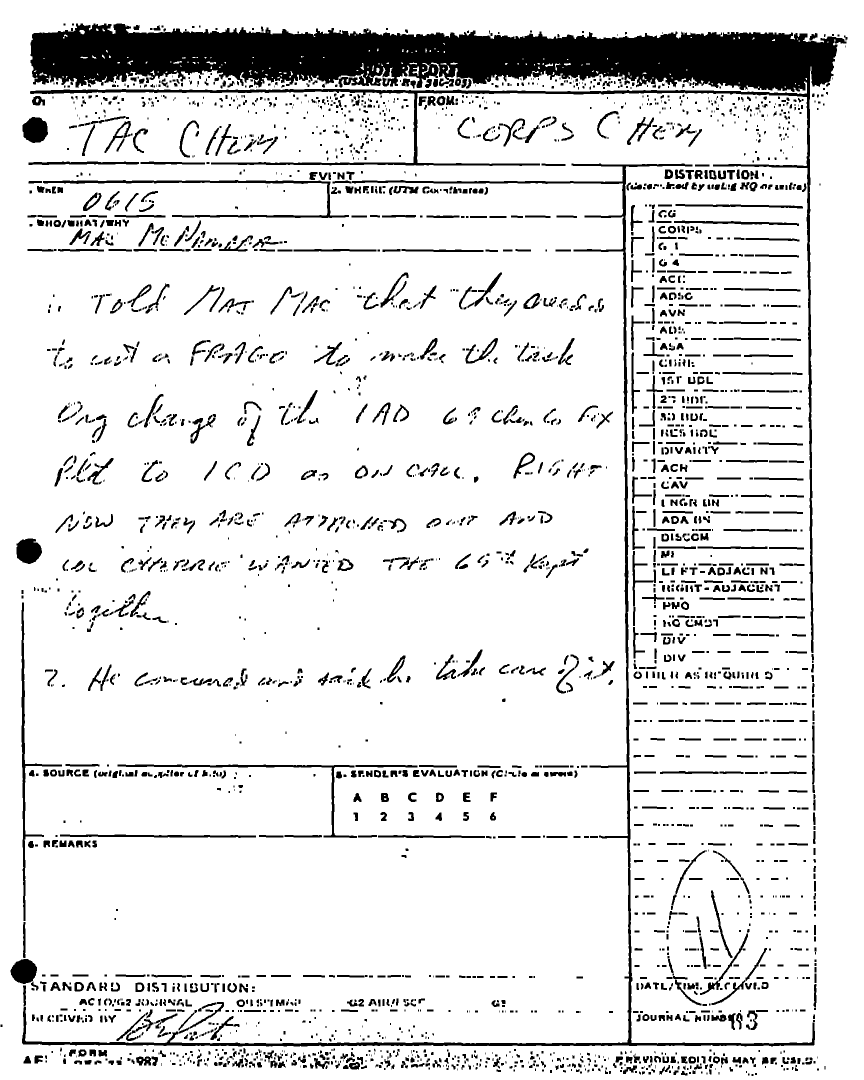 SPOT REPORT
FROM:
TAC CHEM
CORPS CHEM
EVENT
DISTRIBUTION
(determined by using HQ or units)
WHEN
0615
2. WHERE (UTM Coordinates)
WHO/WHAT/WHY
MAC McNAMARA
1. Told MAJ MAC that they needs
to cut a FRAGO to make the task
Org change of the 1AD 69 chem co FOX
Plt to 1CD as ON CALL. RIGHT
NOW THEY ARE ATTACHED OUT AND
COL WANTED THE 69th Kept
together.
2. He concurred and said he take care of it.
CG
CORPS
G 1
G 4
ACE
ADSG
AVN
ADS
ASA
1ST BDE
2D BDE
3D BDE
RES BDE
DIVARTY
ACR
CAV
ENGR BN
ADA BN
DISCOM
MI
LEFT-ADJACENT
RIGHT-ADJACENT
PMO
HQ CMDT
DIV
DIV
OTHER AS REQUIRED
4. SOURCE (original supplier of info)
5. SENDER'S EVALUATION (Circle as
A B C D E F
1 2 3 4 5 6
6. REMARKS
11
STANDARD DISTRIBUTION:
G2 JOURNAL
G2 AIR
DATE/TIME RECEIVED
RECEIVED BY
JOURNAL NUMBER 83
FORM
PREVIOUS EDITION MAY BE USED.